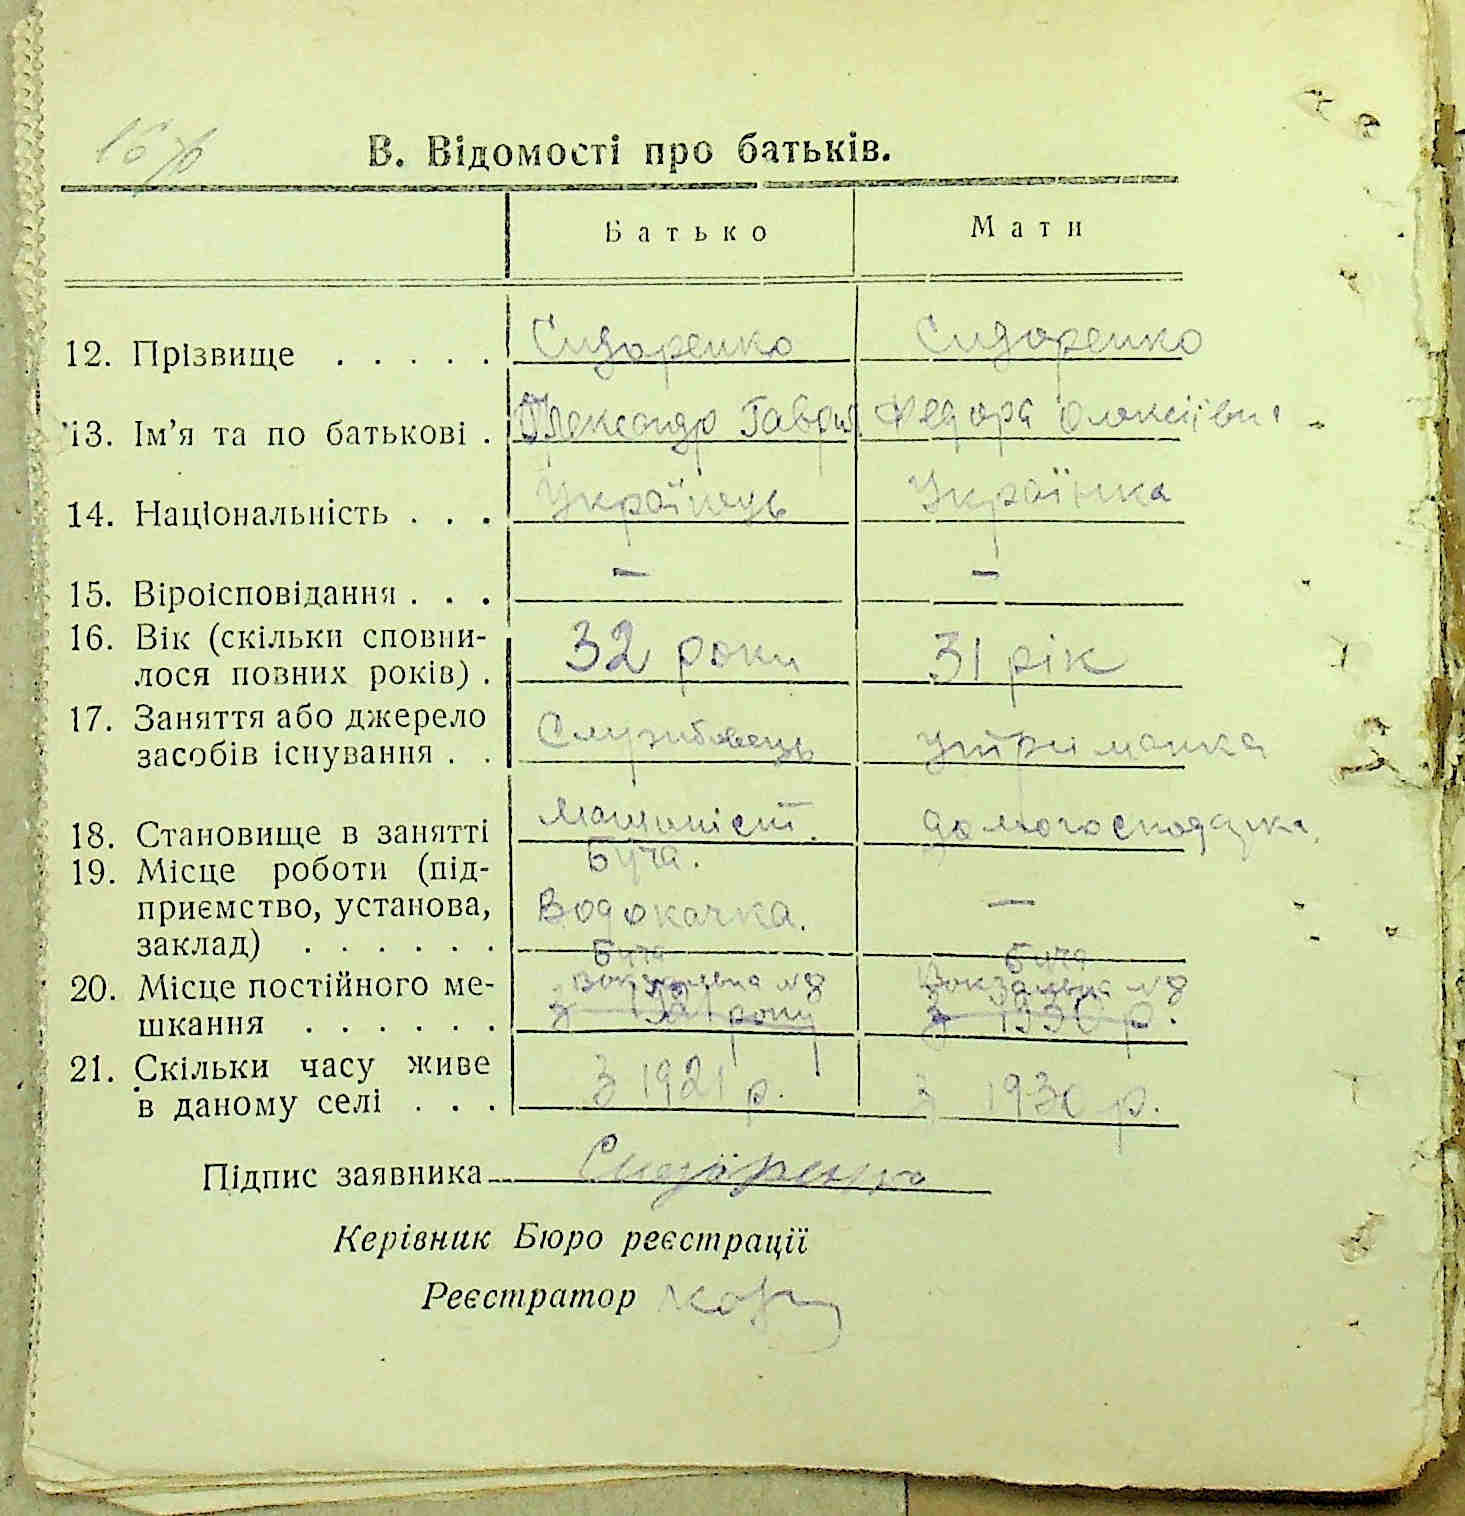 В. Відомості про батьків.
Батько Мати
12. Прізвище . . . . . Сидоренко Сидоренко
13. Ім'я та по батькові . Олександр Гаврил. Федора Олексіївн
14. Національність . . . Українець Українка
15. Віроісповідання . . . — —
16. Вік (скільки сповни-
лося повних років) . 32 роки 31 рік
17. Заняття або джерело
засобів існування . . Службовець утриманка
18. Становище в занятті Машиніст. домогосподарка
19. Місце роботи (під- Буча.
приємство, установа, Водокачка. —
заклад) . . . . . .
Буча Буча
20. Місце постійного ме- Вокзальна №8 Вокзальна №8
шкання . . . . . . з 1921 року з 1930 р.
21. Скільки часу живе
в даному селі . . . З 1921 р. З 1930 р.
Підпис заявника Сидоренко
Керівник Бюро реєстрації
Реєстратор